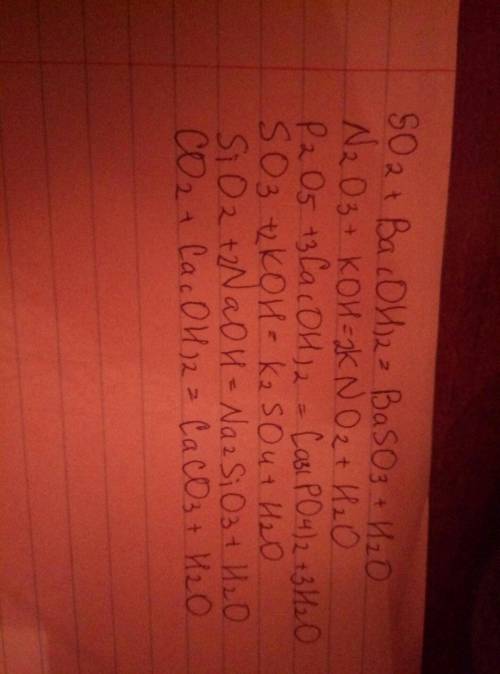 SO2 + Ba(OH)2 = BaSO3 + H2O
N2O3 + KOH = 2KNO2 + H2O
P2O5 + 3Ca(OH)2 = Ca3(PO4)2 + 3H2O
SO3 + 2KOH = K2SO4 + H2O
SiO2 + 2NaOH = Na2SiO3 + H2O
CO2 + Ca(OH)2 = CaCO3 + H2O